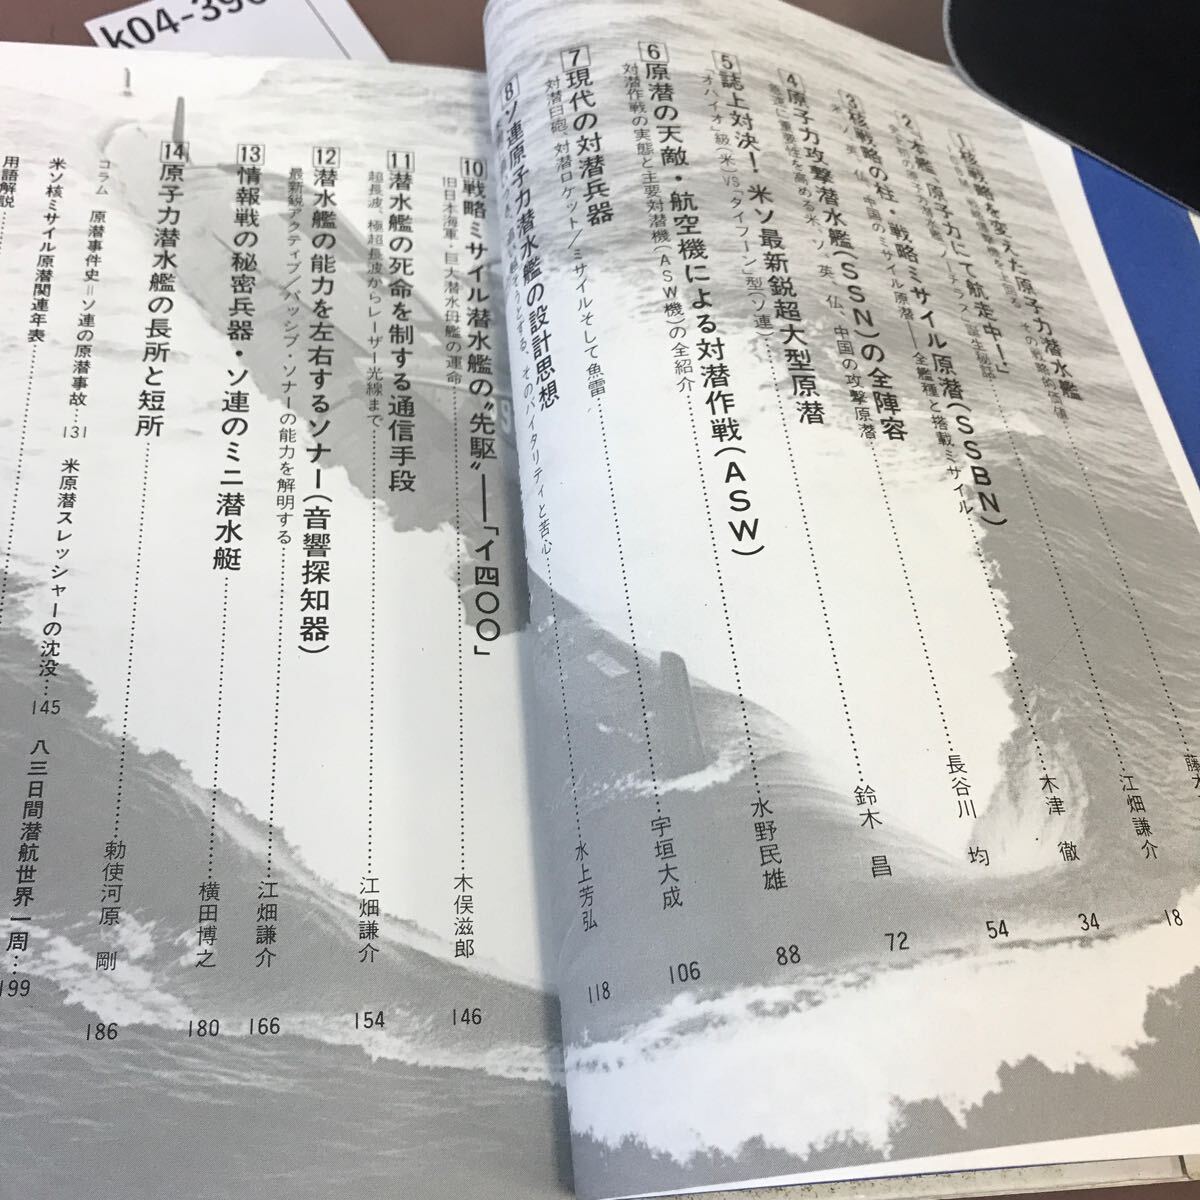 k04-39
1 核戦略を変えた原子力潜水艦
その戦略的価値
藤木
2 本艦、原子力にて航走中!
江畑謙介 18
3 核戦略の柱・戦略ミサイル原潜(SSBN)
米、ソ、英、仏、中国のミサイル原潜――全艦種と搭載ミサイル
木津 徹 34
4 原子力攻撃潜水艦(SSN)の全陣容
急速に重要性を高める米、ソ、英、仏、中国の攻撃原潜
長谷川 均 54
5 誌上対決!米ソ最新鋭超大型原潜
「オハイオ」級(米)VS「タイフーン」型(ソ連)
鈴木 昌 72
6 原潜の天敵・航空機による対潜作戦(ASW)
対潜作戦の実態と主要対潜機(ASW機)の全紹介
水野民雄 88
7 現代の対潜兵器
対潜臼砲、対潜ロケット/ミサイルそして魚雷
宇垣大成 106
8 ソ連原子力潜水艦の設計思想
そのバイタリティと苦心
水上芳弘 118
10 戦略ミサイル潜水艦の〝先駆〟――「イ四〇〇」
旧日本海軍・巨大潜水母艦の運命
木俣滋郎 146
11 潜水艦の死命を制する通信手段
超長波、極超長波からレーザー光線まで
江畑謙介 154
12 潜水艦の能力を左右するソナー(音響探知器)
最新鋭アクティブ/パッシブ・ソナーの能力を解明する
江畑謙介 166
13 情報戦の秘密兵器・ソ連のミニ潜水艇
横田博之 180
14 原子力潜水艦の長所と短所
勅使河原 剛 186
コラム 原潜事件史=ソ連の原潜事故…131 米原潜スレッシャーの沈没…145 八三日間潜航世界一周…199
米ソ核ミサイル原潜関連年表
用語解説